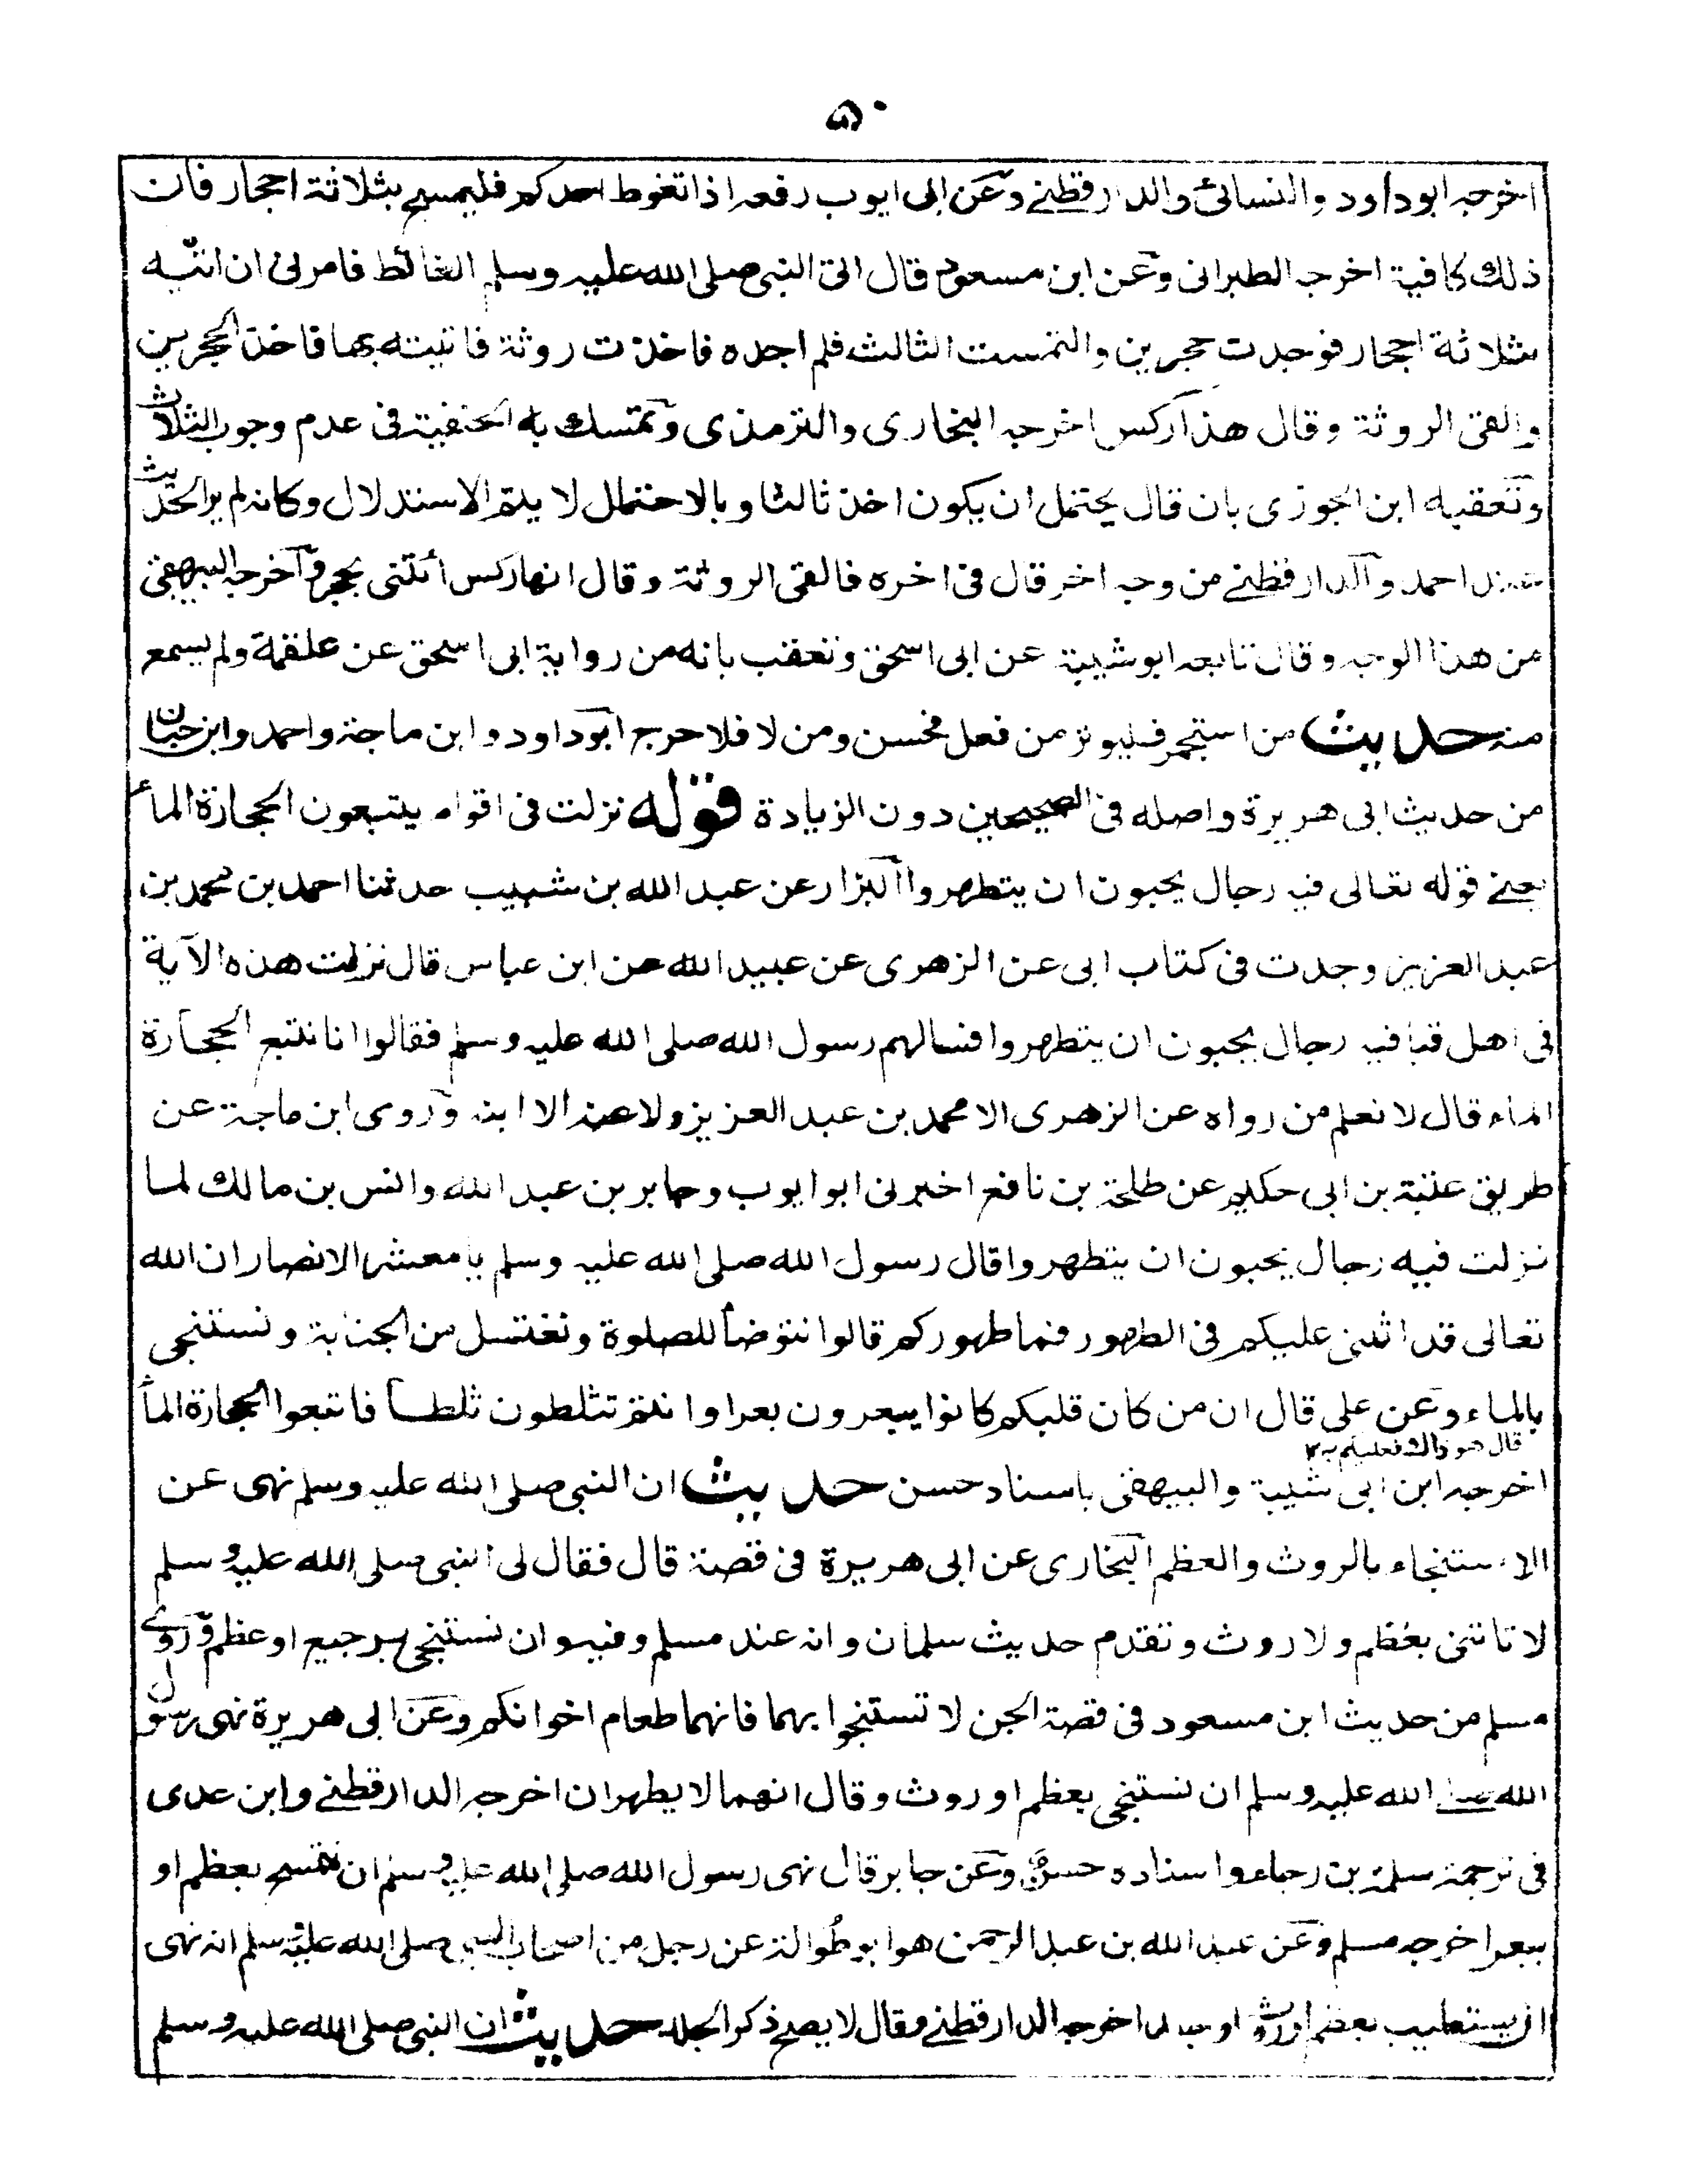 ٥٠
اخرجه ابوداود والنسائى والدارقطنے وعن ابى ايوب رفعه اذا تغوط احدكم فليمسح بثلاثة احجار فان
ذلك كافية اخرجه الطبرانى وعن ابن مسعود قال اتى النبى صلى الله عليه وسلم الغائط فامرنى ان اتيه
بثلاثة احجار فوجدت حجرين والتمست الثالث فلم اجده فاخذت روثة فاتيته بها فاخذ الحجرين
والقى الروثة وقال هذا ركس اخرجه البخارى والترمذى وتمسك به الحنفية فى عدم وجوب الثلاث
وتعقبه ابن الجوزى بان قال يحتمل ان يكون اخذ ثالثا وبالاحتمال لا يتم الاستدلال وكانه لم ير الحديث
عند احمد والدارقطنے من وجه اخر قال فى اخره فالقى الروثة وقال انها ركس ائتنى بحجر واخرجه البيهقى
من هذا الوجه وقال تابعه ابو شيبة عن ابى اسحق وتعقب بانه من رواية ابى اسحق عن علقمة ولم يسمع
منه حديث من استجمر فليوتر من فعل فحسن ومن لا فلا حرج ابوداود وابن ماجة واحمد وابن حبان
من حديث ابى هريرة واصله فى الصحيحين دون الزيادة قوله نزلت فى اقوام يتبعون الحجارة الماء
يعنے قوله تعالى فيه رجال يحبون ان يتطهروا البزار عن عبد الله بن شبيب حدثنا احمد بن محمد بن
عبد العزيز وجدت فى كتاب ابى عن الزهرى عن عبيد الله عن ابن عباس قال نزلت هذه الآية
فى اهل قبا فيه رجال يحبون ان يتطهروا فسالهم رسول الله صلى الله عليه وسلم فقالوا انا نتبع الحجارة
الماء قال لا نعلم من رواه عن الزهرى الا محمد بن عبد العزيز ولا عنه الا ابنه وروى ابن ماجة عن
طريق عتبة بن ابى حكيم عن طلحة بن نافع اخبرنى ابو ايوب وجابر بن عبد الله وانس بن مالك لما
نزلت فيه رجال يحبون ان يتطهروا قال رسول الله صلى الله عليه وسلم يا معشر الانصار ان الله
تعالى قد اثنى عليكم فى الطهور فما طهوركم قالوا نتوضأ للصلوة ونغتسل من الجنابة ونستنجى
بالماء وعن على قال ان من كان قبلكم كانوا يبعرون بعرا وانتم تثلطون ثلطا فاتبعوا الحجارة الماء
قال هو ذاك فعليكم به ١٢
اخرجه ابن ابى شيبة والبيهقى باسناد حسن حديث ان النبى صلى الله عليه وسلم نهى عن
الاستنجاء بالروث والعظم البخارى عن ابى هريرة فى قصة قال فقال لى النبى صلى الله عليه وسلم
لا تاتنى بعظم ولا روث وتقدم حديث سلمان وانه عند مسلم وفيه وان نستنجى برجيع او عظم وروے
مسلم من حديث ابن مسعود فى قصة الجن لا تستنجوا بهما فانهما طعام اخوانكم وعن ابى هريرة نهى رسول
الله صلے الله عليه وسلم ان نستنجى بعظم او روث وقال انهما لا يطهران اخرجه الدارقطنے وابن عدى
فى ترجمة سلمة بن رجاء واسناده حسن وعن جابر قال نهى رسول الله صلى الله عليه وسلم ان نتمسح بعظم او
ببعر اخرجه مسلم وعن عبد الله بن عبد الرحمن هو ابو طوالة عن رجل من اصحاب النبى صلى الله عليه وسلم انه نهى
ان يستطيب بعظم او روث او جلد اخرجه الدارقطنے وقال لا يصح ذكر الجلد حديث ان النبى صلى الله عليه وسلم